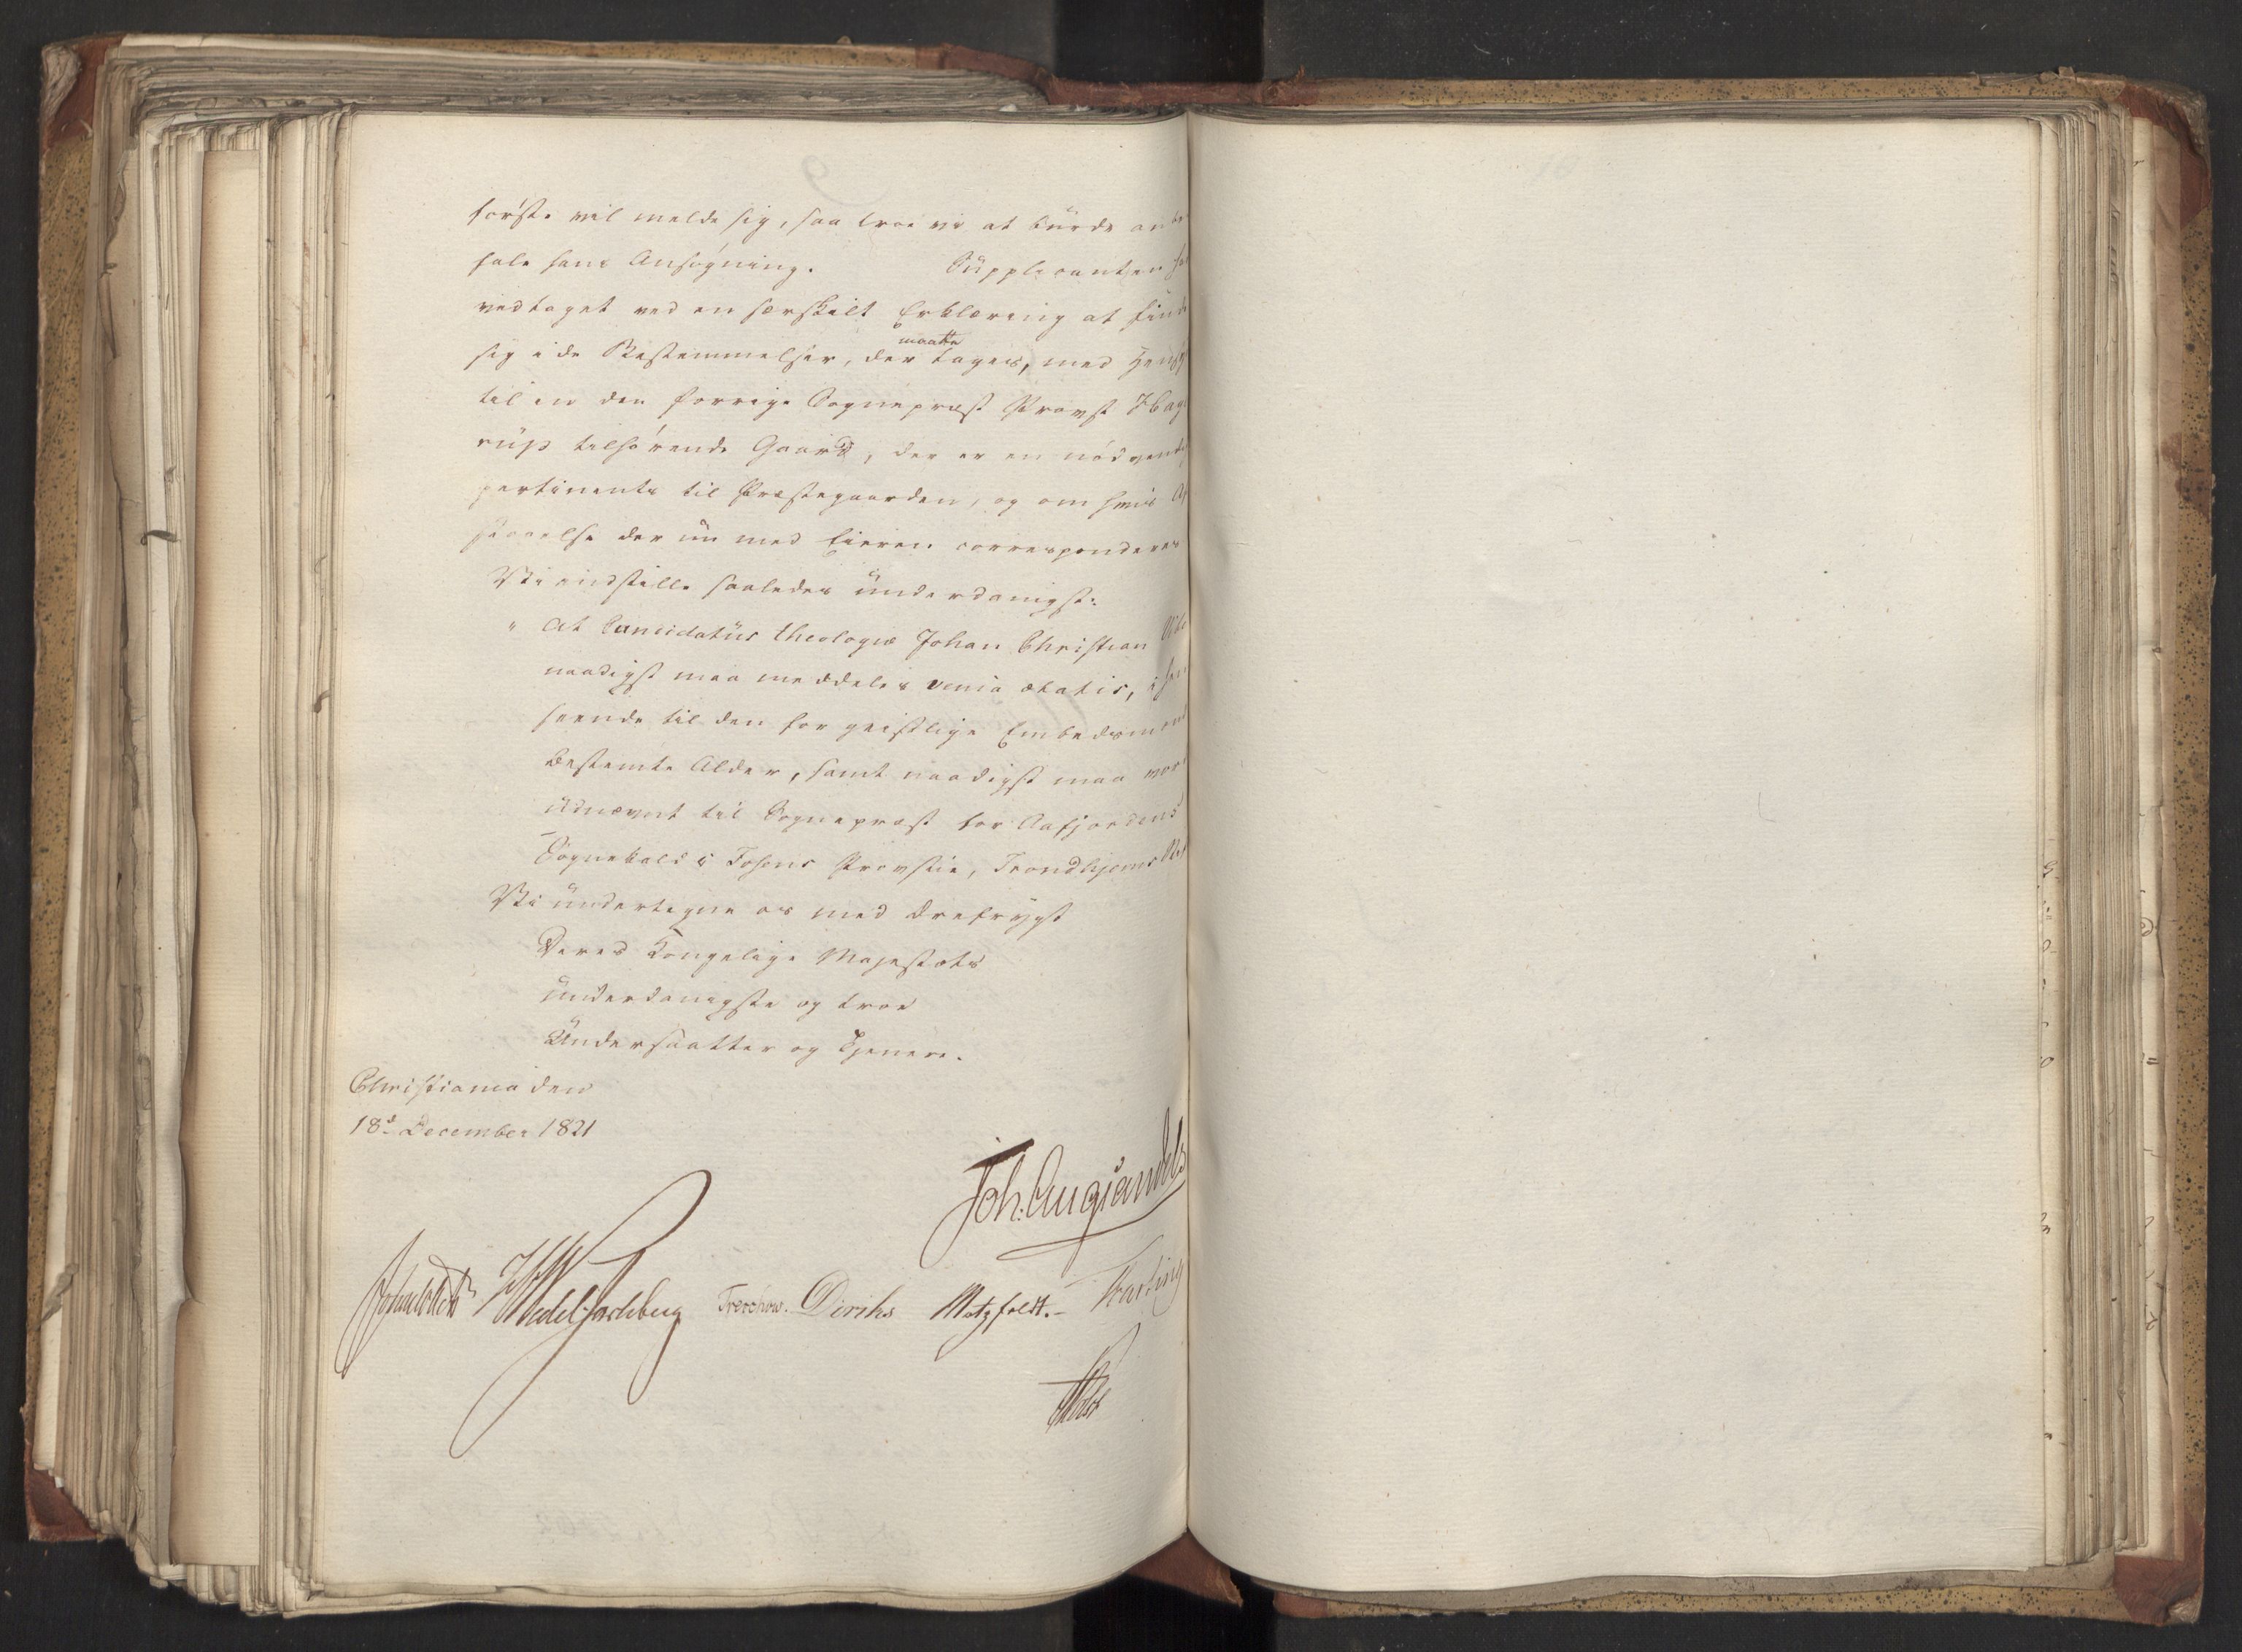 første vil melde sig, saa troe vi at burde anbe
fale hans Ansøgning. Supplicanten ha
vedtaget ved en særskilt Erklæring at finde
sig i de Bestemmelser, der maatte tages, med Hensy
til en den forrige Sognepræst Provst
rups tilhørende Gaard, der er en nødvendi
pertinents til Præstegaarden, og om hvis Af
staaelse der nu med Eieren corresponderes
Vi indstille saaledes underdanigst:
" At Candidatus theologiæ Johan Christian
naadigst maa meddeles venia ætatis, i Hen
seende til den for geistlige Embedsmænd
bestemte Alder, samt naadigst maa vor
udnævnt til Sognepræst for Aafjordens
Sognekald i Fosens Provstie, Trondhjems Stif
Vi undertegne os med Ærefrygt
Deres Kongelige Majestæts
underdanigste og troe
Undersaatter og Tjenere.
Christiania den
18d December 1821
Joh: Aug: Sandels
Wedel Jarlsberg Treschow. Diriks Motzfeldt.- Fasting
Holst